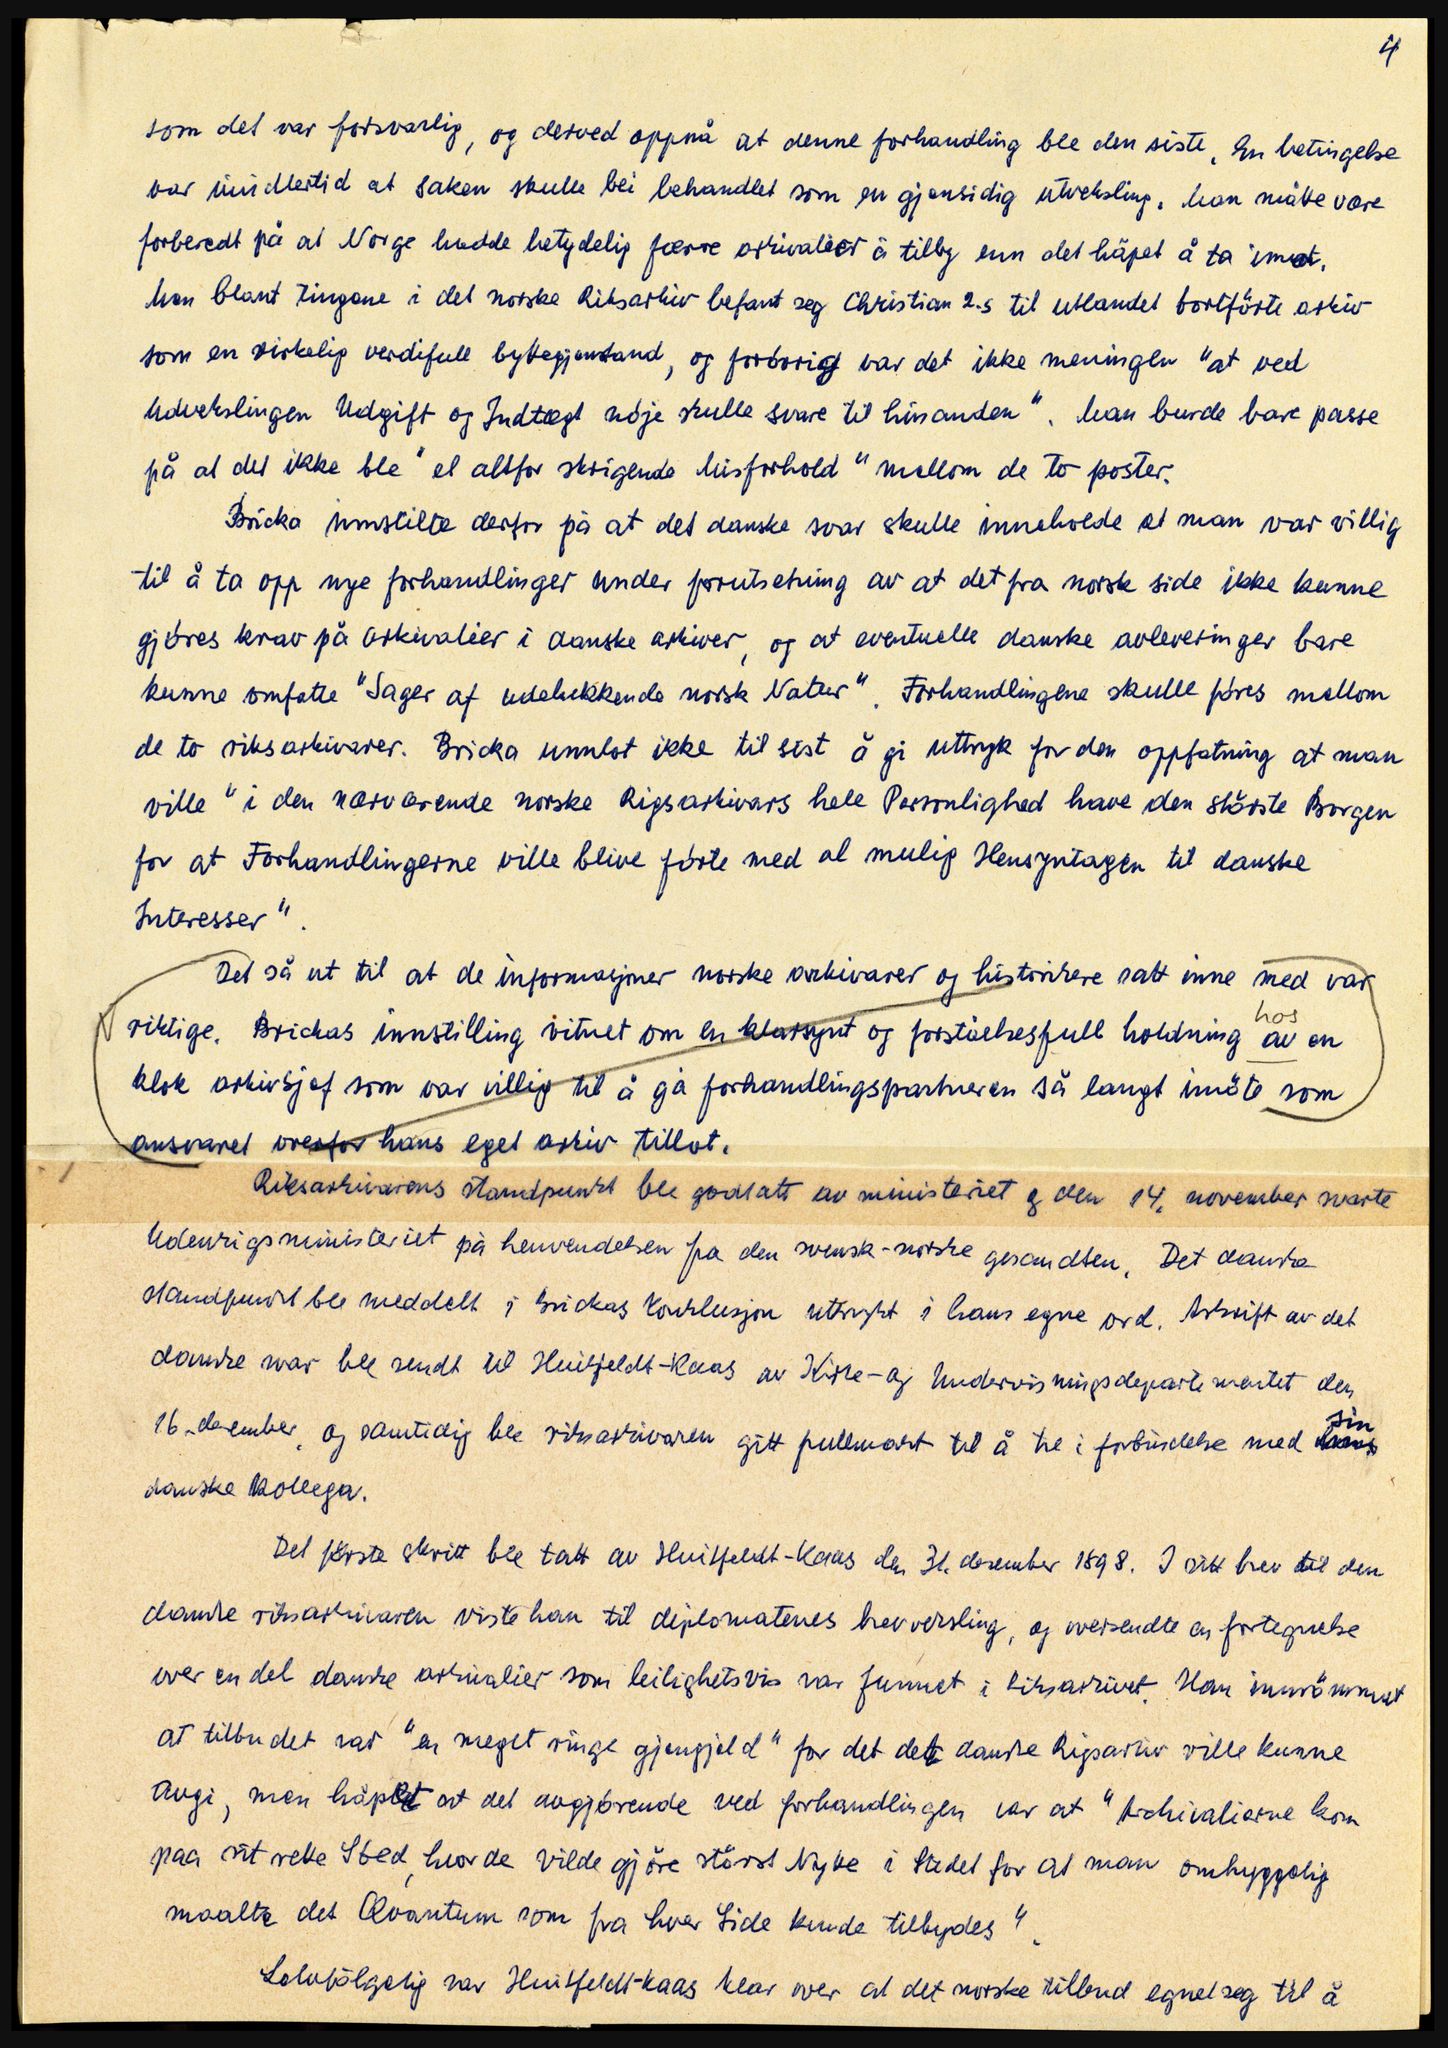 4
som det var forsvarlig, og derved oppnå at denne forhandling ble den siste. En betingelse
var imidlertid at saken skulle bli behandlet som en gjensidig utveksling. Man måtte være
forberedt på at Norge hadde betydelig færre arkivalier å tilby enn det håpet å ta imot.
Men blant tingene i det norske Riksarkiv befant seg Christian 2.s til utlandet bortførte arkiv
som en virkelig verdifull byttegjenstand, og forøvrig var det ikke meningen "at ved
Udvekslingen Udgift og Indtægt nöje skulle svare til hinanden". Man burde bare passe
på at det ikke ble "et altfor skrigende Misforhold" mellom de to poster.
Bricka innstilte derfor på at det danske svar skulle inneholde at man var villig
til å ta opp nye forhandlinger under forutsetning av at det fra norsk side ikke kunne
gjöres krav på arkivalier i danske arkiver, og at eventuelle danske avleveringer bare
kunne omfatte "Sager af udelukkende norsk Natur". Forhandlingene skulle föres mellom
de to riksarkivarer. Bricka unnlot ikke til sist å gi uttryk for den oppfatning at man
ville "i den nærværende norske Rigsarkivars hele Personlighed have den störste Borgen
for at Forhandlingerne ville blive förte med al mulig Hensyntagen til danske
Interesser".
Det så ut til at de informasjoner norske arkivarer og historikere satt inne med var
riktige. Brickas innstilling vitnet om en klarsynt og forståelsesfull holdning av en
hos
klok arkivsjef som var villig til å gå forhandlingspartneren så langt imöte som
ansvaret overfor hans eget arkiv tillot.
Riksarkivarens standpunkt ble godtatt av ministeriet og den 14. november svarte
Udenrigsministeriet på henvendelsen fra den svensk-norske gesandten. Det danske
standpunkt ble meddelt i Brickas konklusjon uttrykt i hans egne ord. Avskrift av det
danske svar ble sendt til Huitfeldt-Kaas av Kirke- og Undervisningsdepartementet den
16. desember, og samtidig ble riksarkivaren gitt fullmakt til å tre i forbindelse med hans
sin
danske kollega.
Det første skritt ble tatt av Huitfeldt-Kaas den 31. desember 1898. I sitt brev til den
danske riksarkivaren viste han til diplomatenes brevveksling, og oversendte en fortegnelse
over en del danske arkivalier som leilighetsvis var funnet i Riksarkivet. Han innrömmet
at tilbudet var "en meget ringe gjengjeld" for det det danske Rigsarkiv ville kunne
avgi, men håpet at det avgjörende ved forhandlingen var at "Archivalierne kom
paa sit rette Sted, hvor de vilde gjöre störst Nytte i Stedet for at man omhyggelig
maalte det Qvantum som fra hver Side kunde tilbydes".
Selvfölgelig var Huitfeldt-Kaas klar over at det norske tilbud egnet seg til å